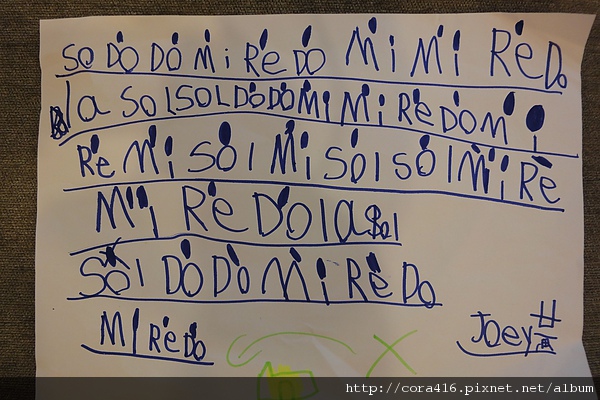 So Do Do Mi Re Do Mi Mi Re Do
la Sol Sol Do Do Mi Mi Re Do Mi
Re Mi Sol Mi Sol Sol Mi Re
Mi Re Do la Sol
Sol Do Do Mi Re Do
Mi Re Do
Joey
http://cora416.pixnet.net/album